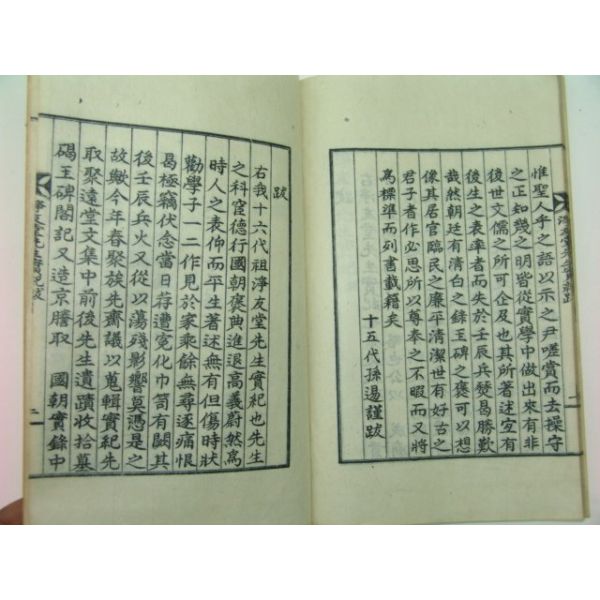 惟聖人乎之語以示之尹嗟賞而去操守
之正知幾之明皆從實學中做出來有非
後世文儒之所可企及也其所著述宜有
後生之表率者而失於壬辰兵燹曷勝歎
哉然朝廷有清白之錄玉碑之褒可以想
像其居官臨民之廉平清潔世有好古之
君子者作必思所以尊奉之不暇而又將
爲標準而列書載籍矣
十五代孫 謹跋
跋
右我十六代祖淨友堂先生實紀也先生
之科宦德行國朝褒典進退高義蔚然爲
時人之表仰而平生著述無有但傷時狀
勸學子一二作見於家乘餘無尋逐痛恨
曷極竊伏念當日存遭冤化巾笥有闕其
後壬辰兵火又從以蕩殘影響莫憑是之
故歟今年春聚族先齋議以蒐輯實紀先
取聚遠堂文集中前後先生遺蹟收拾墓
碣玉碑閣記又造京謄取 國朝實錄中